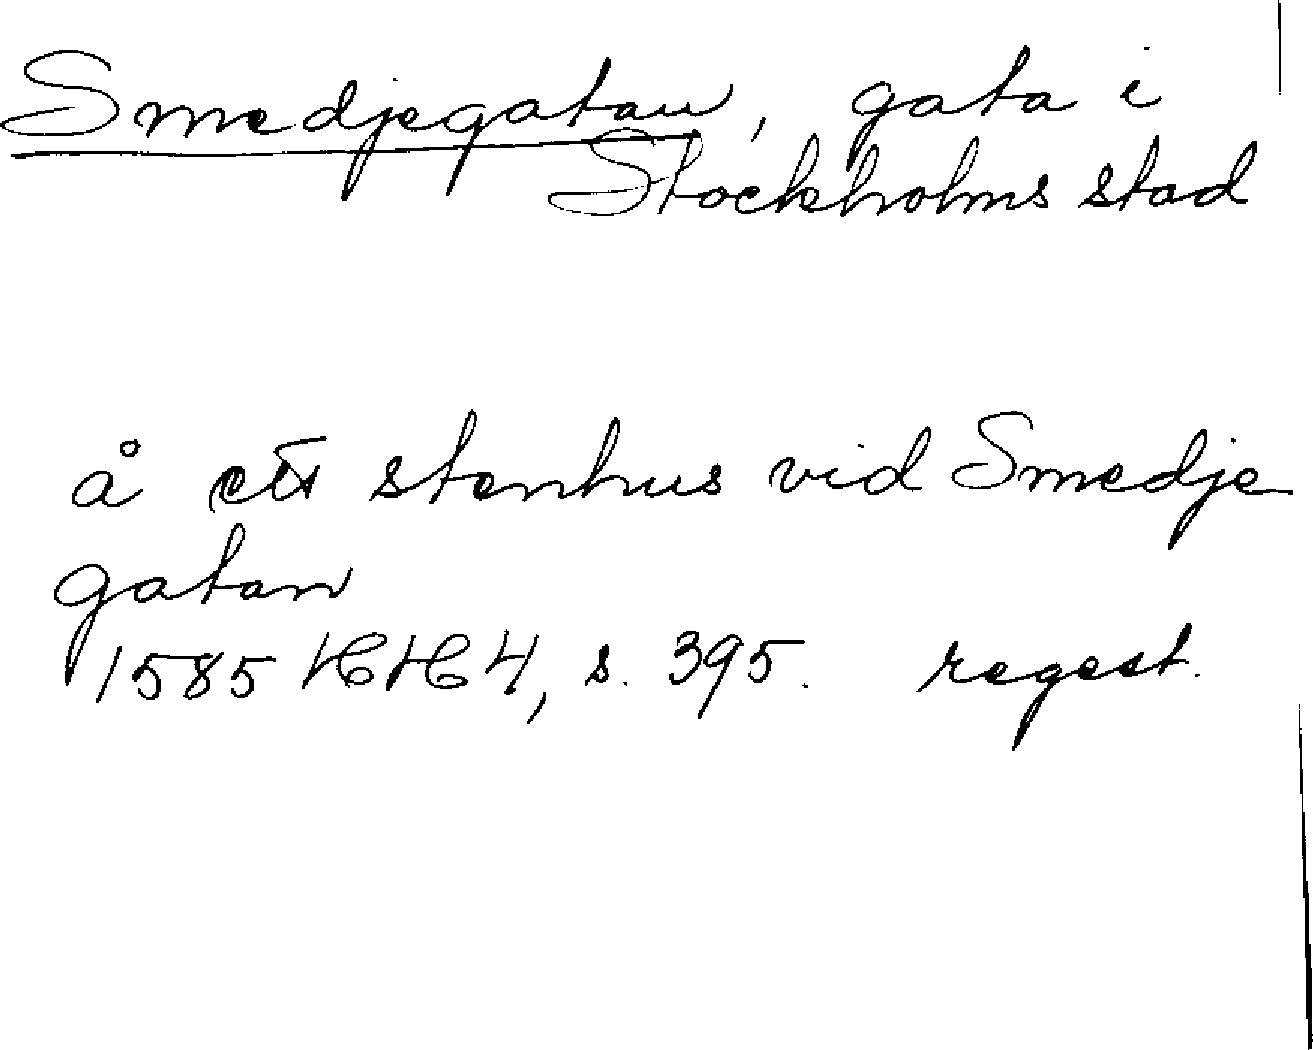 Smedjegatan, gata i
Stockholms stad
å ett stenhus vid Smedje
gatan
1585 HH 4, s. 395. regest.